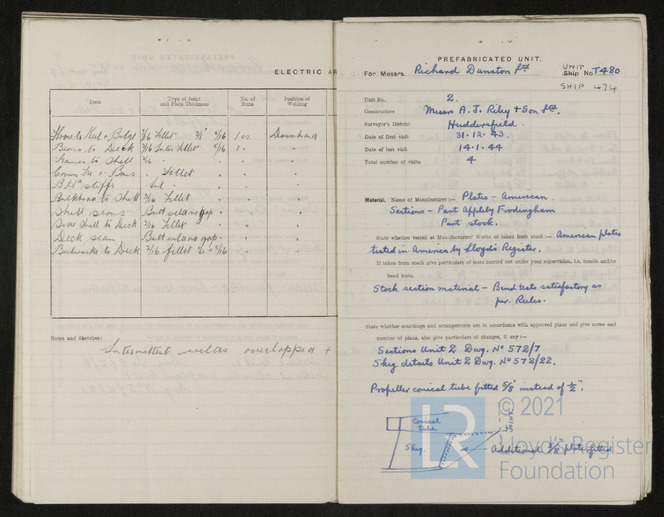 ELECTRIC AR
Item
Type of Joint and Plate Thickness
No. of Runs
Position of Welding
Floors to Keel & Bilge 3/16 Fillet
Downhand
Beams to Deck
Frames to Shell
Fillet
Bulkhead to Shell 3/16 Fillet
Shell seams Butt welds gap
Shell to Deck 3/16 Fillet
Deck seam Butt welds gap
Bulwarks to Deck 3/16 fillet
Notes and Sketches:
Intermittent welds overlapped +
PREFABRICATED UNIT.
For Messrs. Richard Dunston Ltd
UNIT
Ship No T480
SHIP 474
Unit No. 2.
Constructors Messrs A. J. Riley & Son Ltd.
Surveyor's District Huddersfield
Date of first visit 31.12.43.
Date of last visit 14.1.44
Total number of visits 4
Material. Name of Manufacturer:— Plates – American.
Sections – Part Appleby Frodingham
Part stock.
State whether tested at Manufacturers' Works or taken from stock:— American plates
tested in America by Lloyds Register.
If taken from stock give particulars of tests carried out under your supervision, i.e. tensile and/or
bend tests.
Stock section material – Bend tests satisfactory as
per Rules.
State whether scantlings and arrangements are in accordance with approved plans and give name and
number of plans, also give particulars of changes, if any:—
Sections Unit 2 Dwg. No 572/7
Skeg details Unit 2 Dwg. No 572/22.
Propeller conical tube fitted 5/8" instead of 1/2".
Conical
Tube
Skeg.
Additional 5/8" plate fitted
LR
© 2021
Lloyd's Register
Foundation